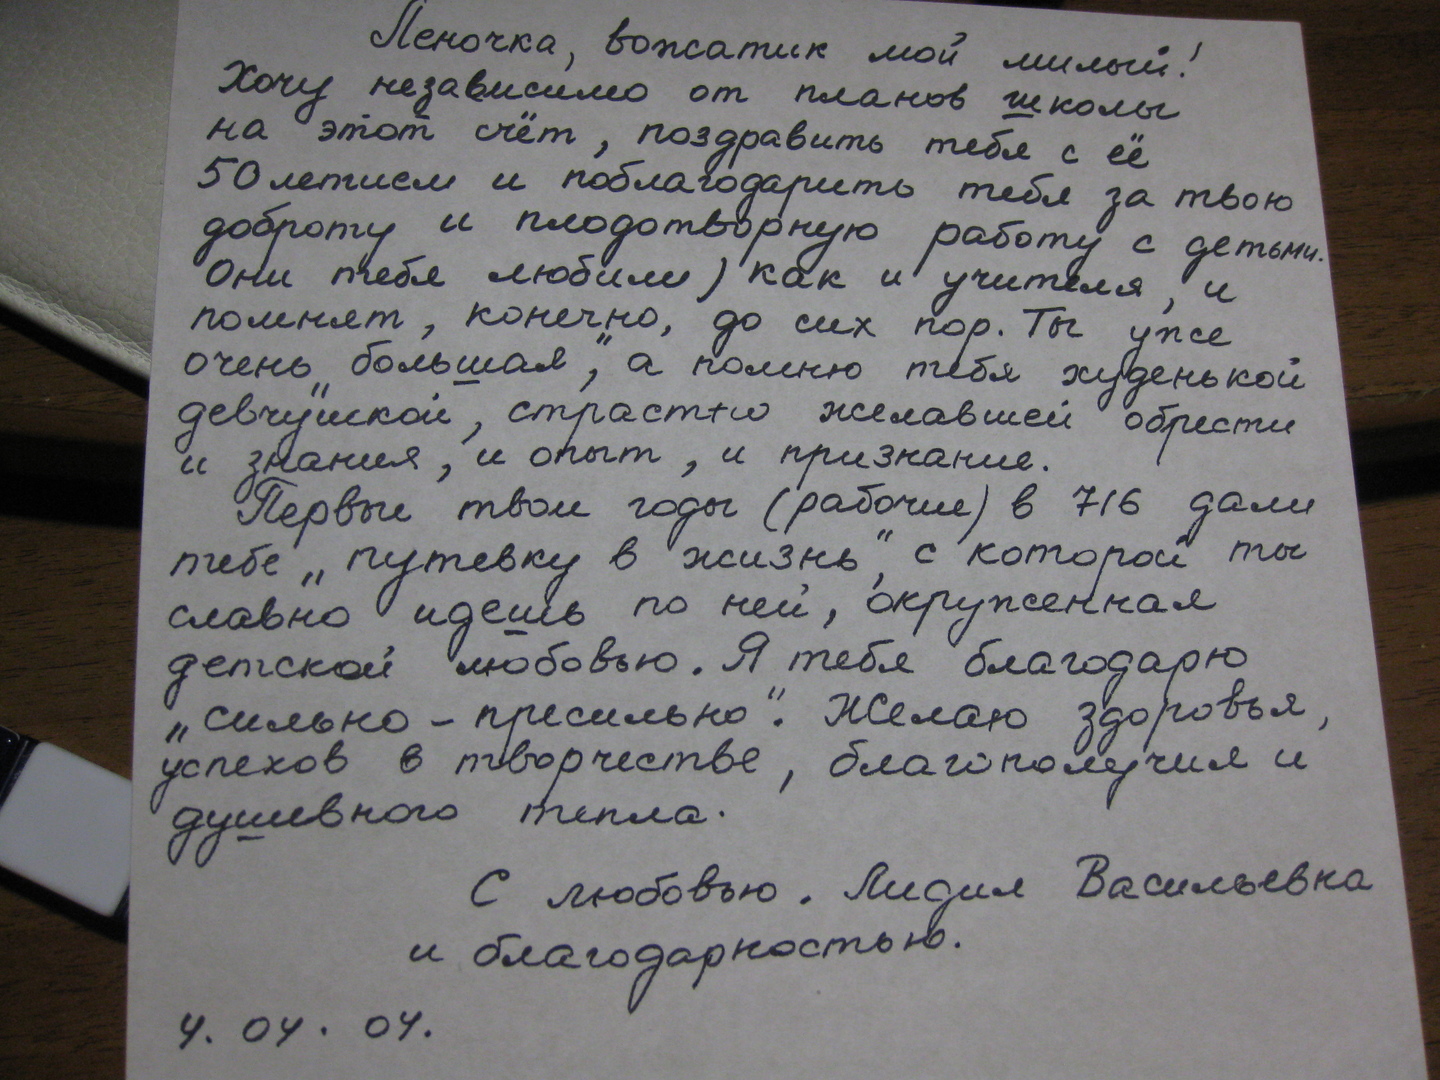 Леночка, вожатик мой милый!
Хочу независимо от планов школы
на этот счёт, поздравить тебя с её
50летием и поблагодарить тебя за твою
доброту и плодотворную работу с детьми.
Они тебя любили, как и учителя, и
помнят, конечно, до сих пор. Ты уже
очень „большая", а помню тебя худенькой
девчушкой, страстно желавшей обрести
и знания, и опыт, и признание.
Первые твои годы (рабочие) в 716 дали
тебе „путевку в жизнь", с которой ты
славно идешь по ней, окруженная
детской любовью. Я тебя благодарю
„сильно – пресильно". Желаю здоровья,
успехов в творчестве, благополучия и
душевного тепла.
С любовью. Лидия Васильевна
и благодарностью.
4. 04. 04.